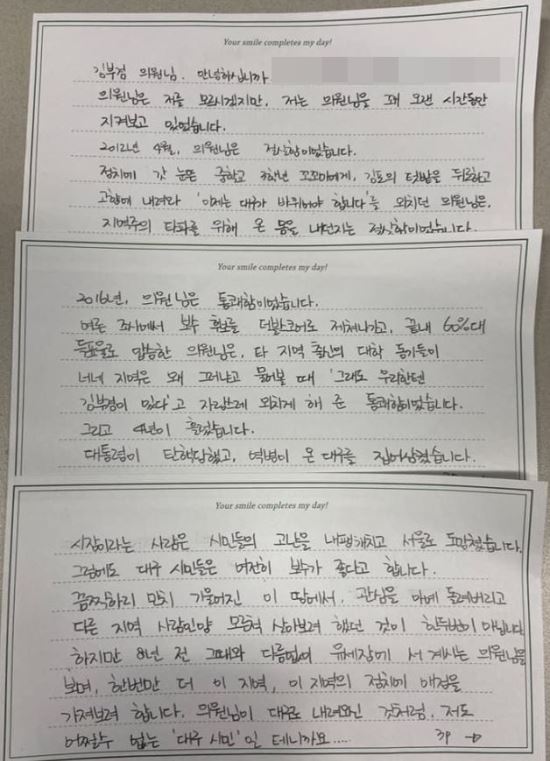 Your smile completes my day!
김부겸 의원님. 안녕하십니까
의원님은 저를 모르시겠지만, 저는 의원님을 꽤 오랜 시간동안
지켜보고 있었습니다.
2012년 4월, 의원님은 절실함이었습니다.
정치에 갓 눈뜬 중학교 3학년 꼬꼬마에게, 김포의 텃밭을 뒤로하고
고향에 내려와 '이제는 대구가 바뀌어야 합니다'를 외치던 의원님은,
지역주의 타파를 위해 온 몸을 내던지는 절실함이었습니다.
Your smile completes my day!
2016년, 의원님은 통쾌함이었습니다.
여론 조사에서 보수 후보를 더블스코어로 제쳐나가고, 끝내 60%대
득표율로 입성한 의원님은, 타 지역 출신의 대학 동기들이
너네 지역은 왜 그러냐고 물어볼 때 '그래도 우리한텐
김부겸이 있다'고 자랑스레 외치게 해 준 통쾌함이었습니다.
그리고 4년이 흘렀습니다.
대통령이 탄핵당했고, 역병이 온 대구를 집어삼켰습니다.
Your smile completes my day!
시장이라는 사람은 시민들의 고난을 내팽개치고 서울로 도망쳤습니다.
그럼에도 대구 시민들은 여전히 보수가 좋다고 합니다.
끔찍하리 만치 기울어진 이 땅에서, 관심을 아예 돌려버리고
다른 지역 사람인양 모른척 살아보려 했던 것이 한두번이 아닙니다
하지만 8년 전 그때와 다름없이 유세장에 서 계시는 의원님을
보며, 한번만 더 이 지역, 이 지역의 정치에 애정을
가져보려 합니다. 의원님이 대구로 내려와신 것처럼, 저도
어쩔수 없는 '대구 시민'일 테니까요.....